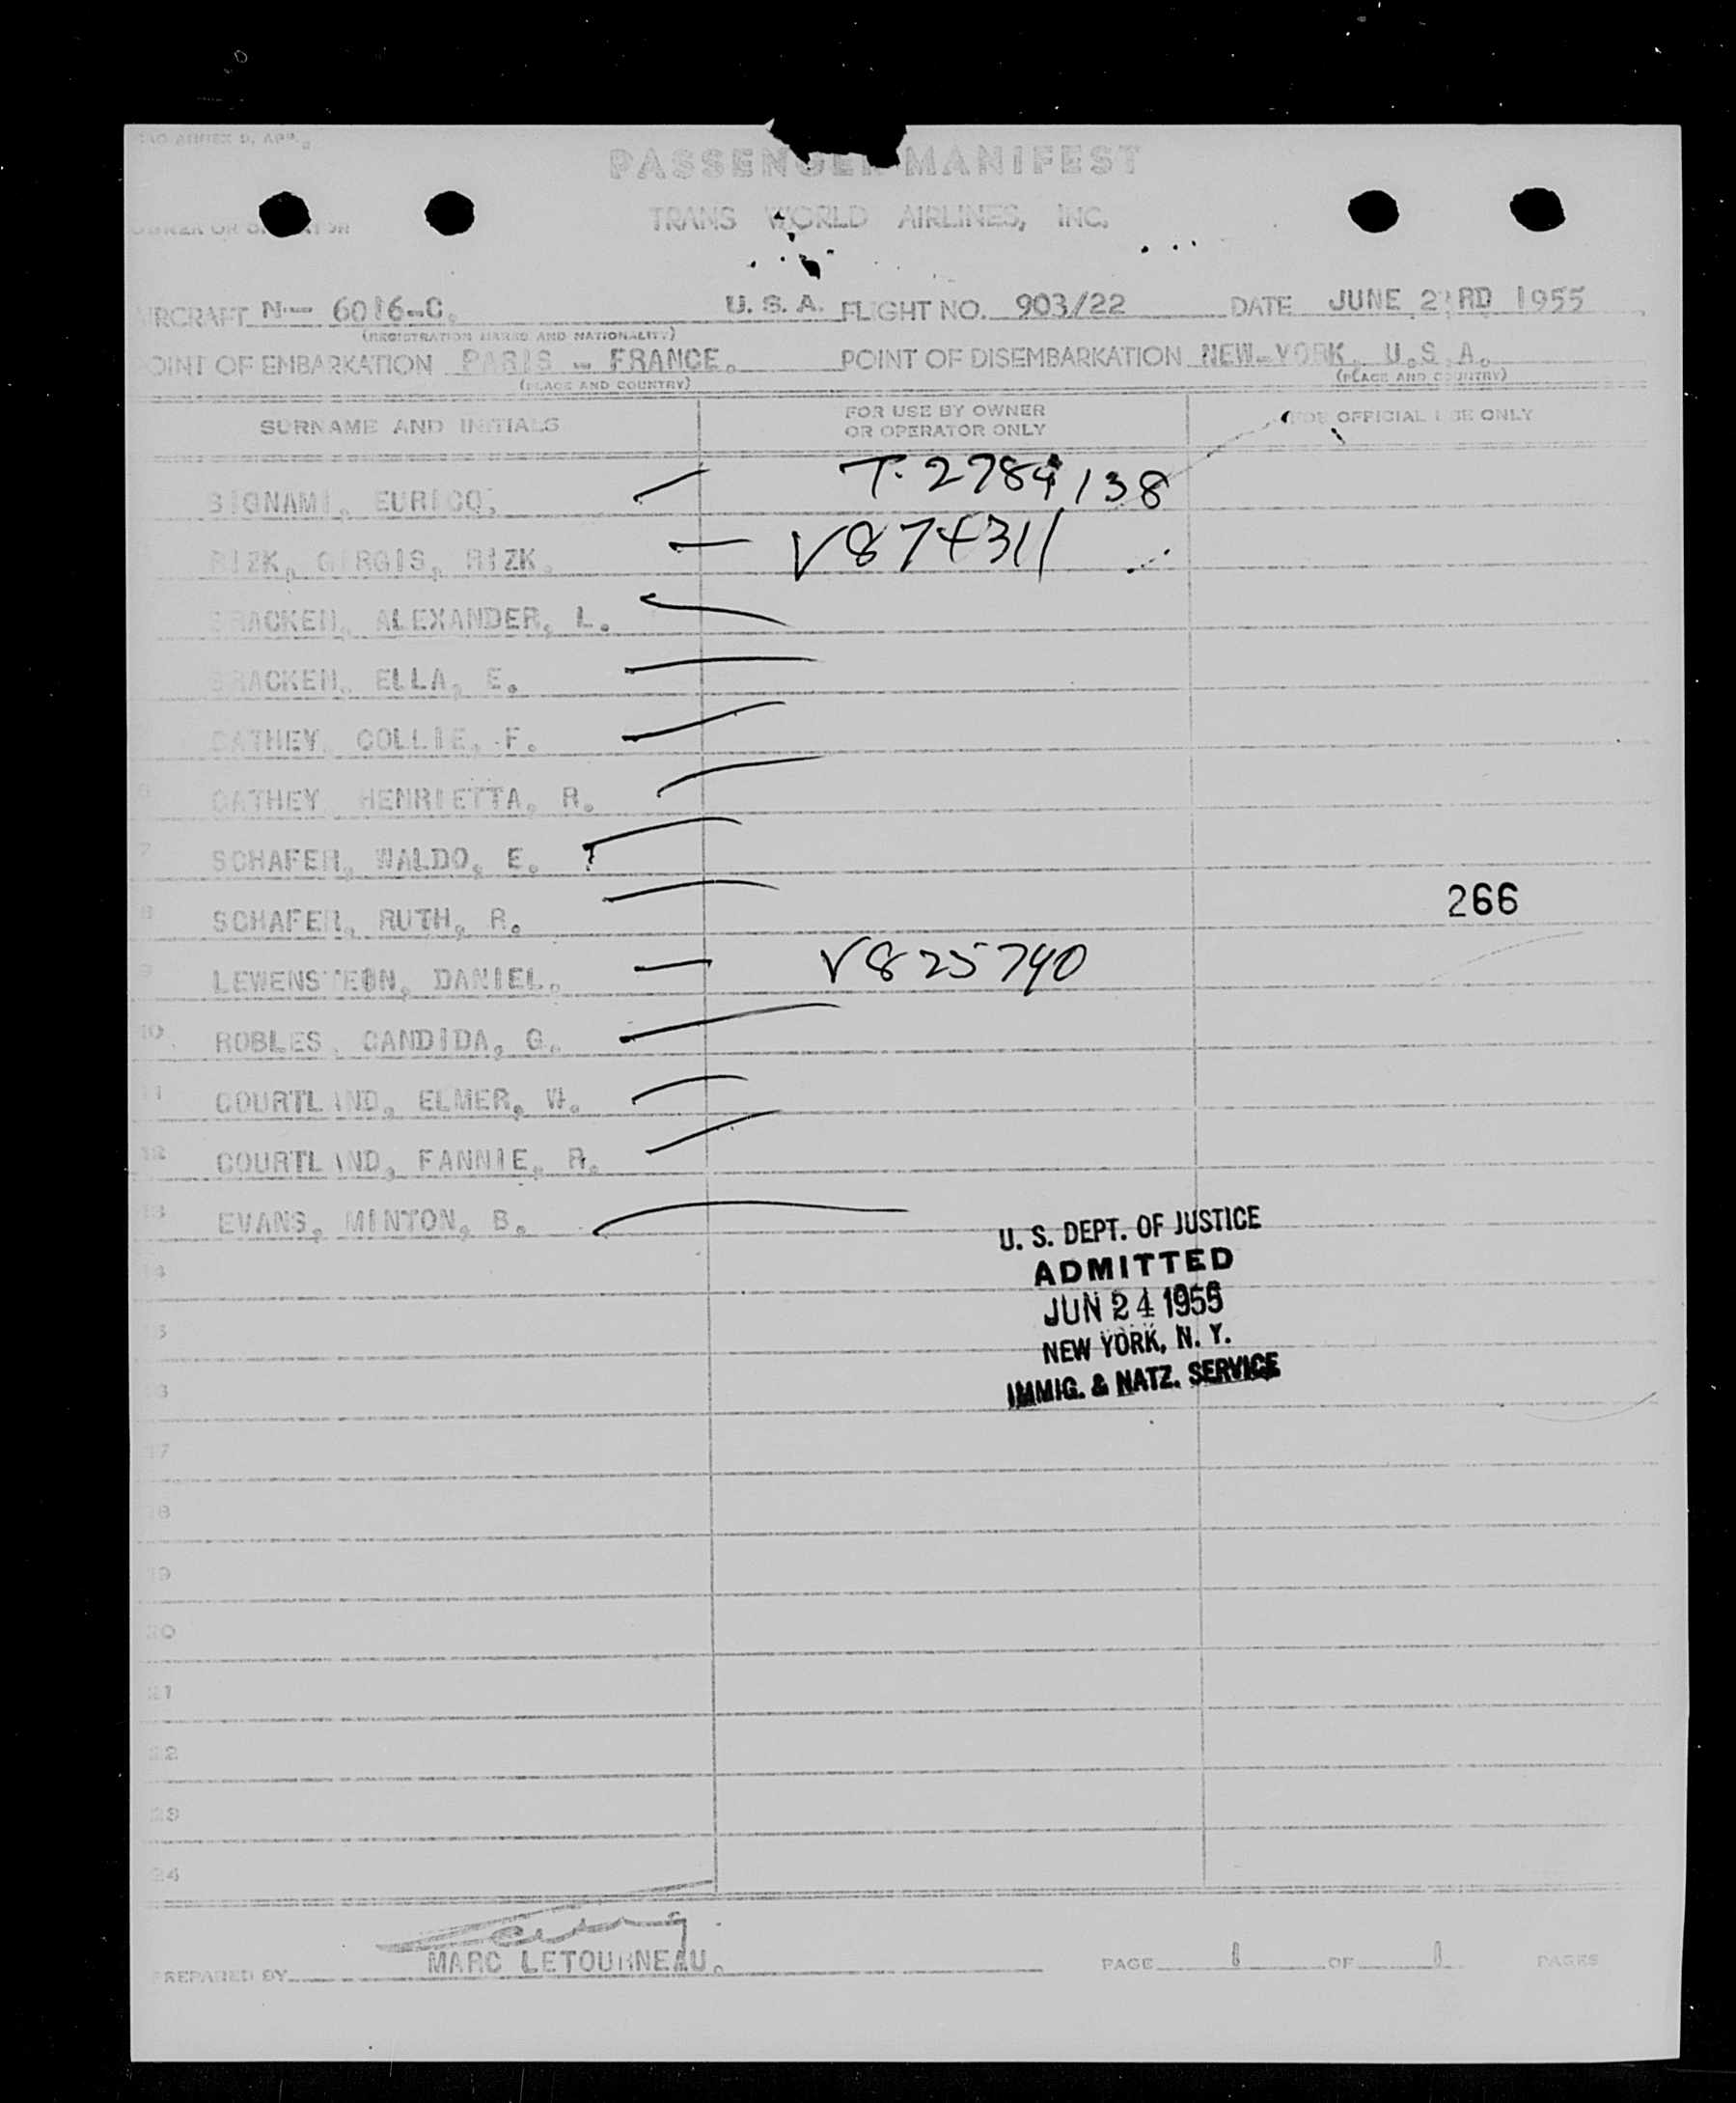 PASSENGER MANIFEST
TRANS WORLD AIRLINES, INC.
AIRCRAFT N-- 6016-C. U. S. A. FLIGHT NO. 903/22 DATE JUNE 23RD 1955
(REGISTRATION MARKS AND NATIONALITY)
POINT OF EMBARKATION PARIS - FRANCE. POINT OF DISEMBARKATION NEW-YORK, U.S.A.
(PLACE AND COUNTRY) (PLACE AND COUNTRY)
SURNAME AND INITIALS FOR USE BY OWNER OR OPERATOR ONLY FOR OFFICIAL USE ONLY
EURICO, T. 2784138
RIZK, GIRGIS, RIZK. V874311
BRACKEN, ALEXANDER, L.
BRACKEN, ELLA, E.
CATHEY, COLLIE, F.
6 CATHEY, HENRIETTA, R.
7 SCHAFER, WALDO, E.
8 SCHAFER, RUTH, R. 266
9 LEWENSTEIN, DANIEL. V825790
10 ROBLES, CANDIDA, G.
11 COURTLAND, ELMER, W.
12 COURTLAND, FANNIE, R.
13 EVANS, MINTON, B.
U. S. DEPT. OF JUSTICE
ADMITTED
JUN 24 1955
NEW YORK, N. Y.
IMMIG. & NATZ. SERVICE
14
15
16
17
18
19
20
21
22
23
24
PREPARED BY MARC LETOURNEAU. PAGE 1 OF 1 PAGES